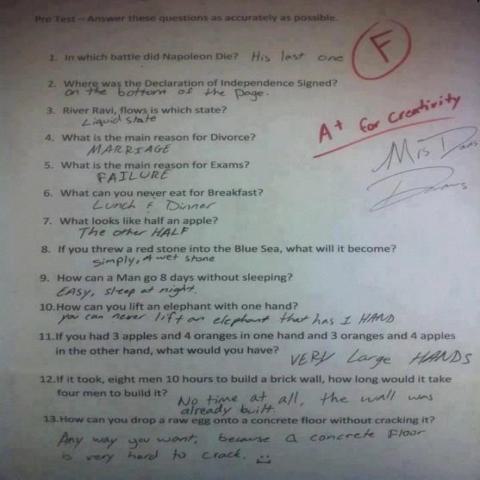 Pre Test – Answer these questions as accurately as possible.
F
1. In which battle did Napoleon Die? His last one
2. Where was the Declaration of Independence Signed?
on the bottom of the page.
3. River Ravi, flows is which state?
Liquid state
A+ for Creativity
4. What is the main reason for Divorce?
MARRIAGE
Mrs
5. What is the main reason for Exams?
FAILURE
6. What can you never eat for Breakfast?
Lunch & Dinner
7. What looks like half an apple?
The other HALF
8. If you threw a red stone into the Blue Sea, what will it become?
simply, A wet stone
9. How can a Man go 8 days without sleeping?
EASY, sleep at night.
10. How can you lift an elephant with one hand?
you can never lift an elephant that has 1 HAND
11. If you had 3 apples and 4 oranges in one hand and 3 oranges and 4 apples
in the other hand, what would you have? VERY Large HANDS
12. If it took, eight men 10 hours to build a brick wall, how long would it take
four men to build it? No time at all, the wall was
already built.
13. How can you drop a raw egg onto a concrete floor without cracking it?
Any way you want, because a concrete floor
is very hard to crack.